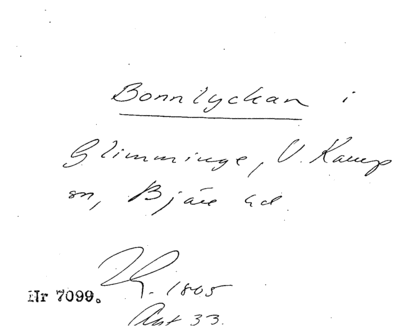 Bonnlyckan i
Glimminge, V. Karup
sn, Bjäre hd.
1805
Nr 7099.
Akt 33.